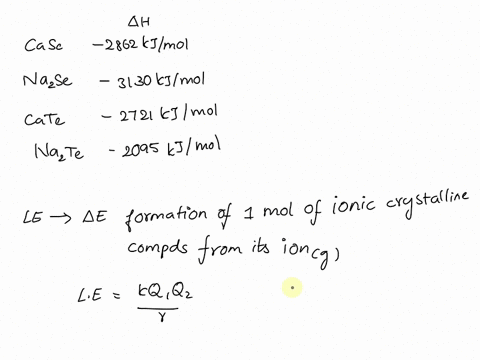 ΔH
CaSe -2862 kJ/mol
Na2Se - 3130 kJ/mol
CaTe - 2721 kJ/mol
Na2Te - 2095 kJ/mol
LE → ΔE formation of 1 mol of ionic crystalline
compds from its ion(g)
L.E = kQ1Q2
r